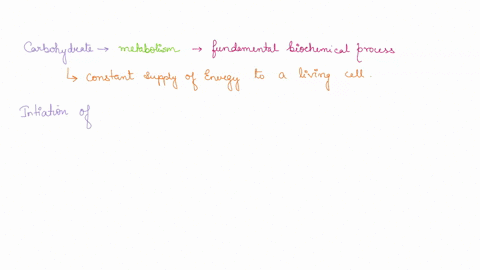 Carbohydrate → metabolism → fundamental biochemical process
↳ constant supply of Energy to a living cell.
Intiation of